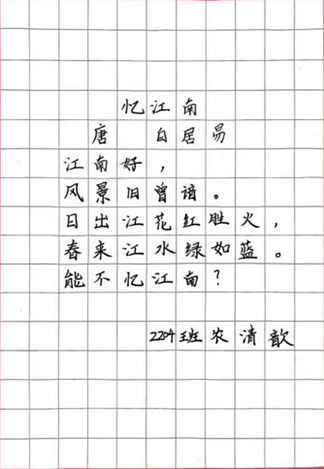 忆江南
唐 白居易
江南好，
风景旧曾谙。
日出江花红胜火，
春来江水绿如蓝。
能不忆江南？
2204班农清歆